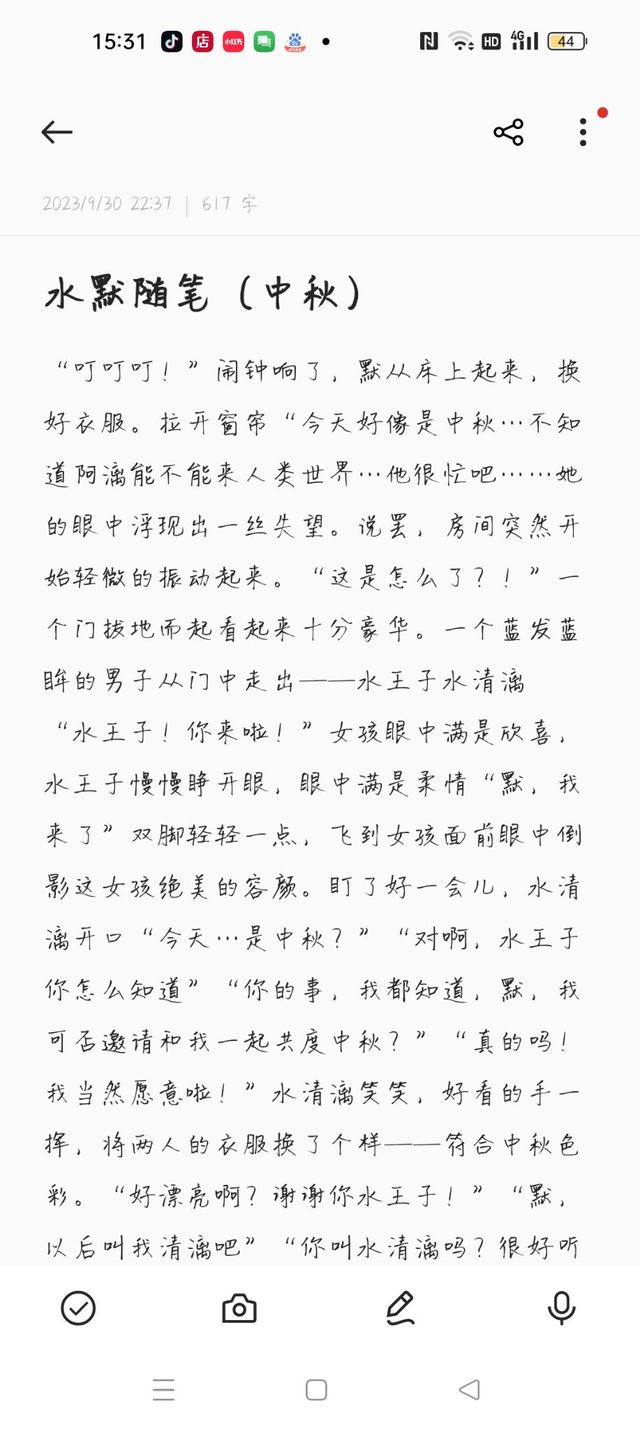 15:31
店
小红书
HD
4G
44
2023/9/30 22:37 | 617 字
水默随笔（中秋）
“叮叮叮！”闹钟响了，默从床上起来，换
好衣服。拉开窗帘“今天好像是中秋…不知
道阿漓能不能来人类世界…他很忙吧……她
的眼中浮现出一丝失望。说罢，房间突然开
始轻微的振动起来。“这是怎么了？！”一
个门拔地而起看起来十分豪华。一个蓝发蓝
眸的男子从门中走出——水王子水清漓
“水王子！你来啦！”女孩眼中满是欣喜，
水王子慢慢睁开眼，眼中满是柔情“默，我
来了”双脚轻轻一点，飞到女孩面前眼中倒
影这女孩绝美的容颜。盯了好一会儿，水清
漓开口“今天…是中秋？”“对啊，水王子
你怎么知道”“你的事，我都知道，默，我
可否邀请和我一起共度中秋？”“真的吗！
我当然愿意啦！”水清漓笑笑，好看的手一
挥，将两人的衣服换了个样——符合中秋色
彩。“好漂亮啊？谢谢你水王子！”“默，
以后叫我清漓吧”“你叫水清漓吗？很好听